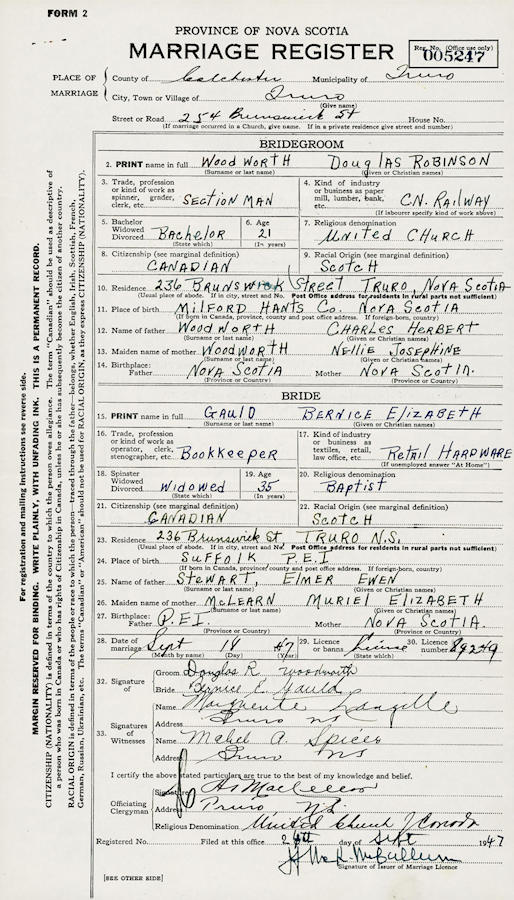 FORM 2
PROVINCE OF NOVA SCOTIA
MARRIAGE REGISTER
Reg. No. (Office use only)
005247
PLACE OF MARRIAGE
County of Colchester Municipality of Truro
City, Town or Village of Truro
(Give name)
Street or Road 254 Brunswick St House No.
(If marriage occurred in a Church, give name. If in a private residence give street and number)
BRIDEGROOM
2. PRINT name in full WOODWORTH DOUGLAS ROBINSON
(Surname or last name) (Given or Christian names)
3. Trade, profession or kind of work as spinner, grader, clerk, etc. SECTION MAN
4. Kind of industry or business as paper mill, lumber, bank, etc. C.N. RAILWAY
(If labourer specify kind of work above)
5. Bachelor Widowed Divorced BACHELOR (State which)
6. Age 21 (In years)
7. Religious denomination UNITED CHURCH
8. Citizenship (see marginal definition) CANADIAN
9. Racial Origin (see marginal definition) SCOTCH
10. Residence 236 BRUNSWICK STREET TRURO, NOVA SCOTIA
(Usual place of abode. If in city, street and No. Post Office address for residents in rural parts not sufficient)
11. Place of birth MILFORD HANTS CO. NOVA SCOTIA
(If born in Canada, province, county and post office address. If foreign-born, country)
12. Name of father WOODWORTH CHARLES HERBERT
(Surname or last name) (Given or Christian names)
13. Maiden name of mother WOODWORTH NELLIE JOSEPHINE
(Surname or last name) (Given or Christian names)
14. Birthplace: Father NOVA SCOTIA Mother NOVA SCOTIA.
(Province or Country) (Province or Country)
BRIDE
15. PRINT name in full GAULD BERNICE ELIZABETH
(Surname or last name) (Given or Christian names)
16. Trade, profession or kind of work as operator, clerk, stenographer, etc. BOOKKEEPER
17. Kind of industry or business as textiles, retail, law office, etc. RETAIL HARDWARE
(If unemployed answer "At Home")
18. Spinster Widowed Divorced WIDOWED (State which)
19. Age 35 (In years)
20. Religious denomination BAPTIST
21. Citizenship (see marginal definition) CANADIAN
22. Racial Origin (see marginal definition) SCOTCH
23. Residence 236 Brunswick St, TRURO N.S.
(Usual place of abode. If in city, street and No. Post Office address for residents in rural parts not sufficient)
24. Place of birth SUFFOLK P.E.I
(If born in Canada, province, county and post office address. If foreign-born, country)
25. Name of father STEWART, ELMER EWEN
(Surname or last name) (Given or Christian names)
26. Maiden name of mother MCLEARN MURIEL ELIZABETH
(Surname or last name) (Given or Christian names)
27. Birthplace: Father P.E.I. Mother NOVA SCOTIA.
(Province or Country) (Province or Country)
28. Date of marriage Sept 18 47
(Month by name) (Day) (Year)
29. Licence or banns License
30. Licence number 89249
32. Signature of
Groom Douglas R Woodworth
Bride Bernice E. Gauld
33. Signatures of Witnesses
Name Marguerite Langille
Address Truro NS
Name Mabel A. Spicer
Address Truro NS
I certify the above stated particulars are true to the best of my knowledge and belief.
Officiating Clergyman
Signature
Address Truro N.S.
Religious Denomination United Church of Canada
Registered No. Filed at this office day of Sept 1947
Signature of Issuer of Marriage Licence
[SEE OTHER SIDE]
For registration and mailing instructions see reverse side.
MARGIN RESERVED FOR BINDING. WRITE PLAINLY, WITH UNFADING INK. THIS IS A PERMANENT RECORD.
CITIZENSHIP (NATIONALITY) is defined in terms of the country to which the person owes allegiance. The term "Canadian" should be used as descriptive of
a person who was born in Canada or who has rights of Citizenship in Canada, unless he or she has subsequently become the citizen of another country.
RACIAL ORIGIN is defined in terms of the people or race to which the person—traced through the father—belongs, whether English, Irish, Scottish, French,
German, Russian, Ukrainian, etc. The terms "Canadian" or "American" should not be used for RACIAL ORIGIN, as they express CITIZENSHIP (NATIONALITY).